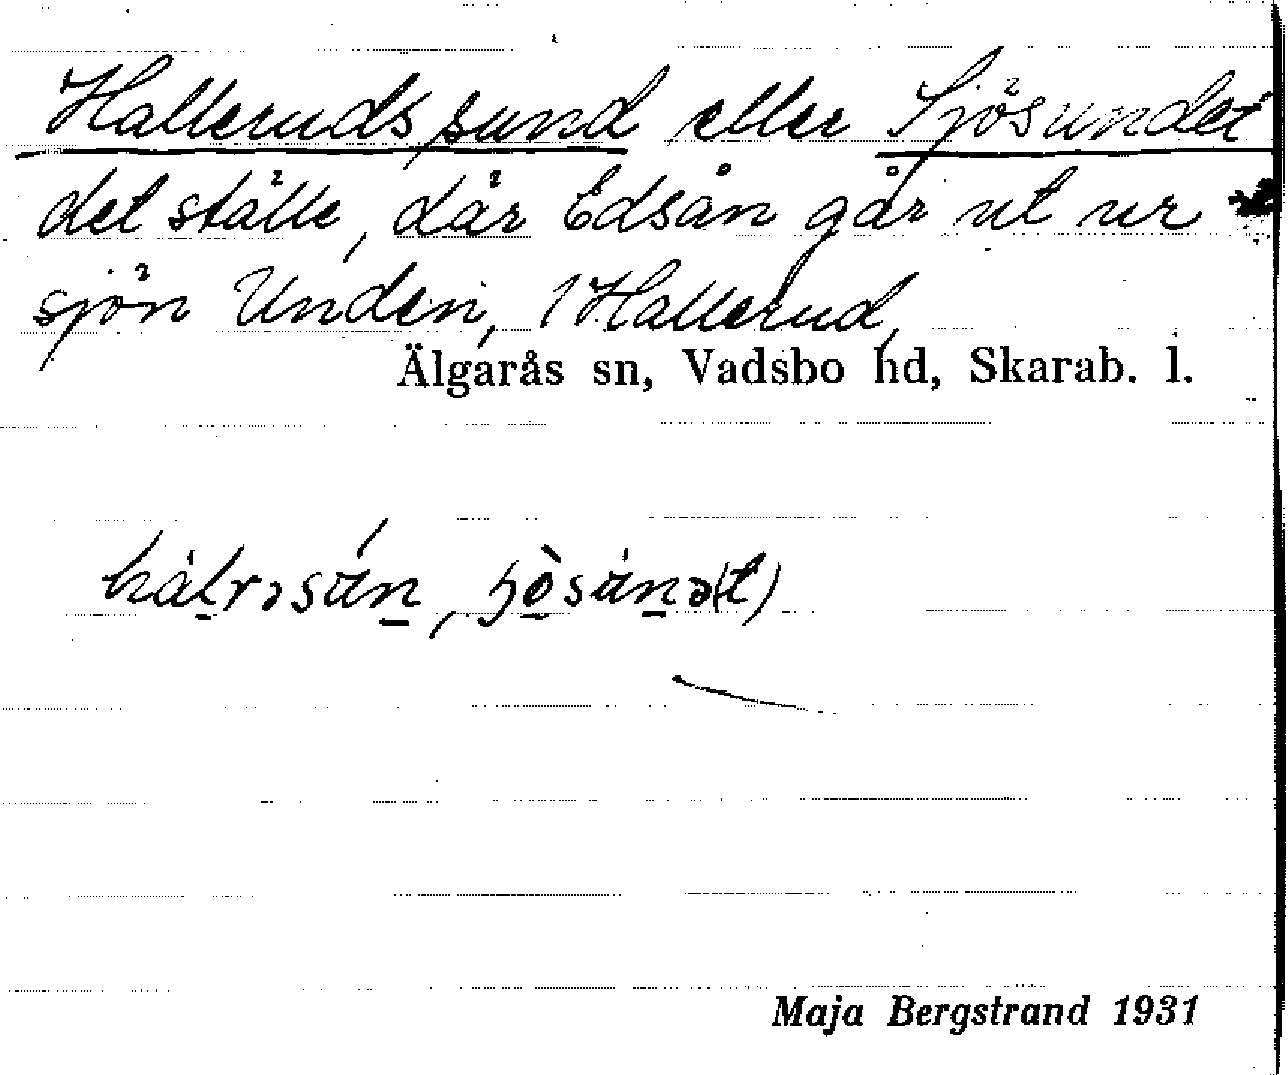 Halleruds sund eller Sjösundet
det ställe, där Edsån går ut ur
sjön Unden, / Hallerud,
Älgarås sn, Vadsbo hd, Skarab. l.
Maja Bergstrand 1931